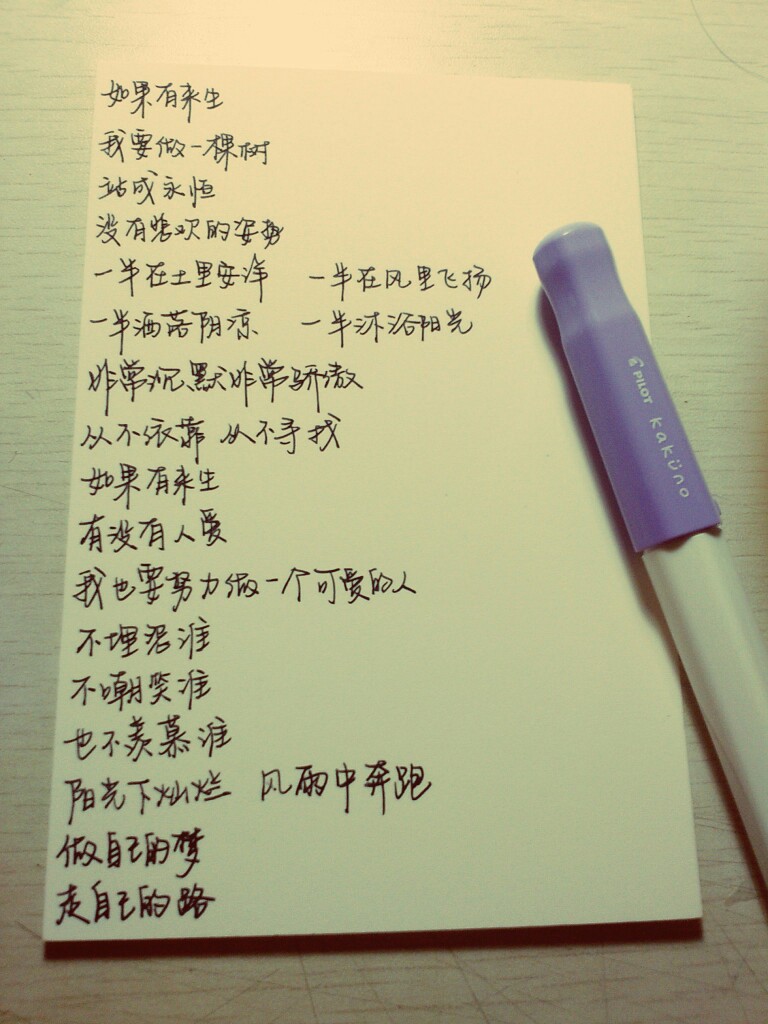 如果有来生
我要做一棵树
站成永恒
没有悲欢的姿势
一半在土里安详 一半在风里飞扬
一半洒落阴凉 一半沐浴阳光
非常沉默非常骄傲
从不依靠 从不寻找
如果有来生
有没有人爱
我也要努力做一个可爱的人
不埋怨谁
不嘲笑谁
也不羡慕谁
阳光下灿烂 风雨中奔跑
做自己的梦
走自己的路
PILOT kaküno